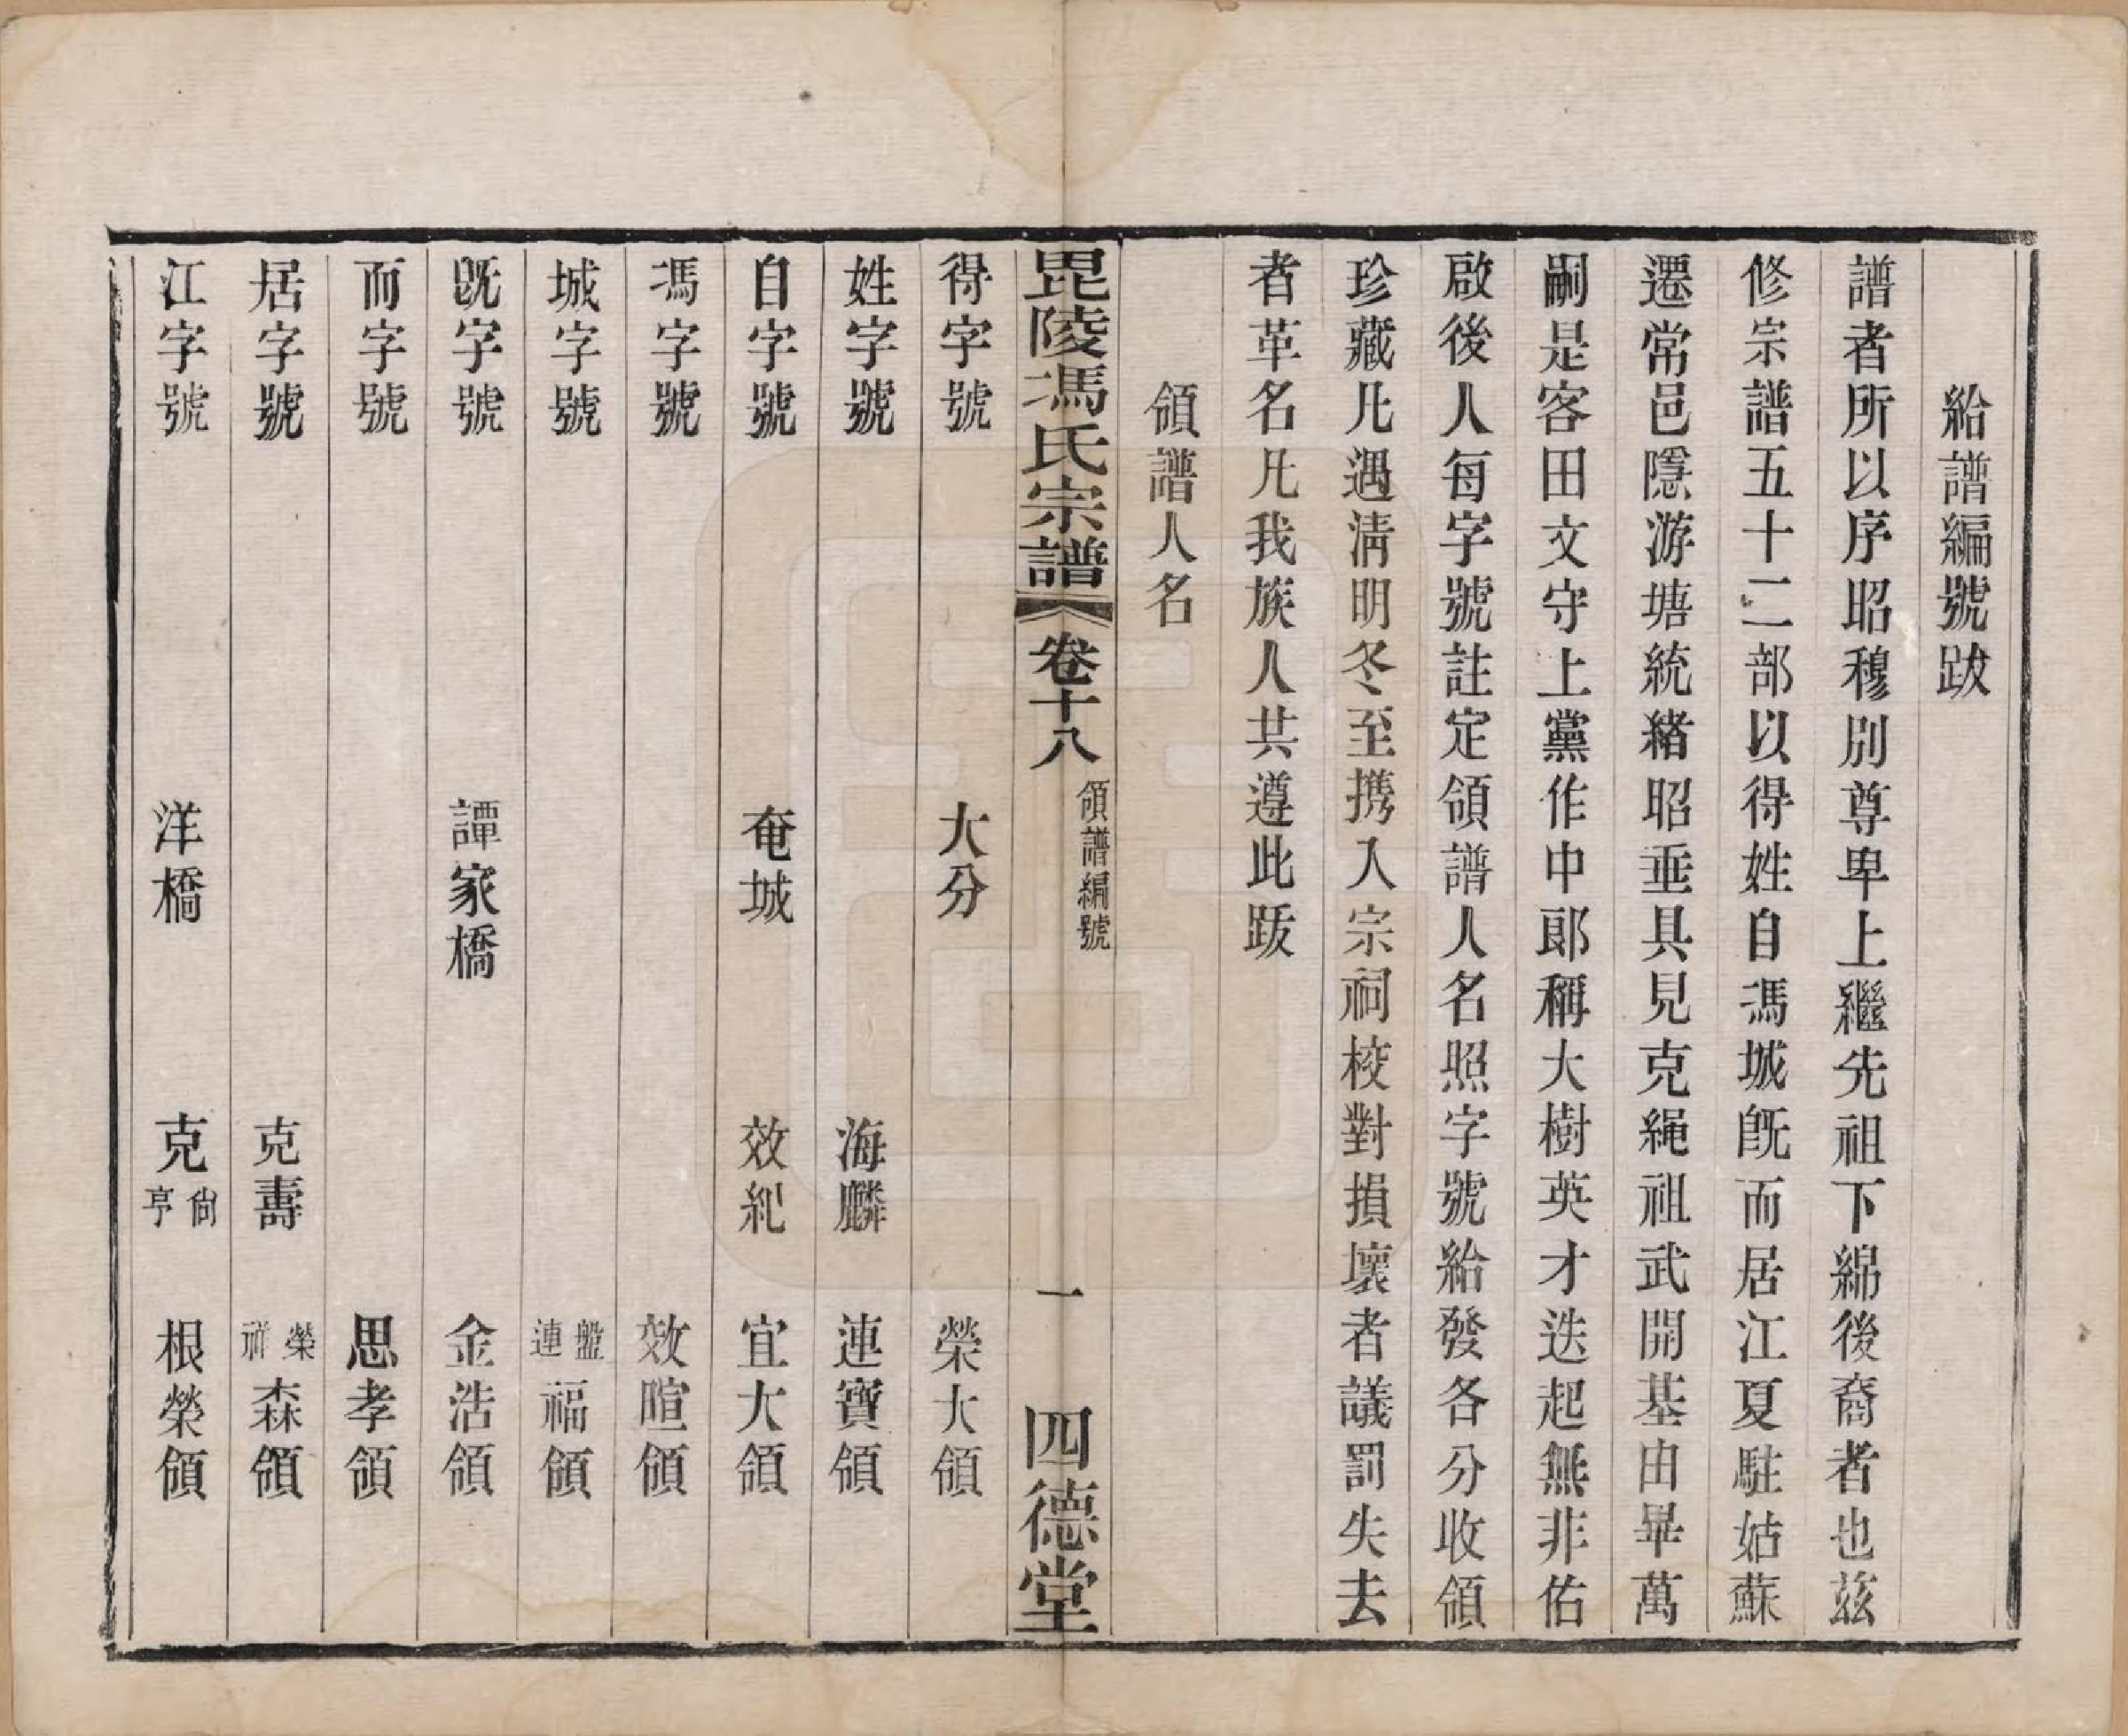 給譜編號跋
譜者所以序昭穆別尊卑上繼先祖下綿後裔者也茲
修宗譜五十二部以得姓自馮城旣而居江夏駐姑蘇
遷常邑隱游塘統緒昭垂具見克繩祖武開基由畢萬
嗣是客田文守上黨作中郞稱大樹英才迭起無非佑
啟後人每字號註定領譜人名照字號給發各分收領
珍藏凡遇淸明冬至携入宗祠校對損壞者議罰失去
者革名凡我族人共遵此跋
領譜人名
毘陵馮氏宗譜 卷十八 領譜編號 一 四德堂
得字號 大分 榮大領
姓字號 海麟 連寶領
自字號 奄城 效紀 宜大領
馮字號 效暄領
城字號 盤連福領
旣字號 譚家橋 金浩領
而字號 思孝領
居字號 克壽 榮祥森領
江字號 洋橋 克尙亨 根榮領